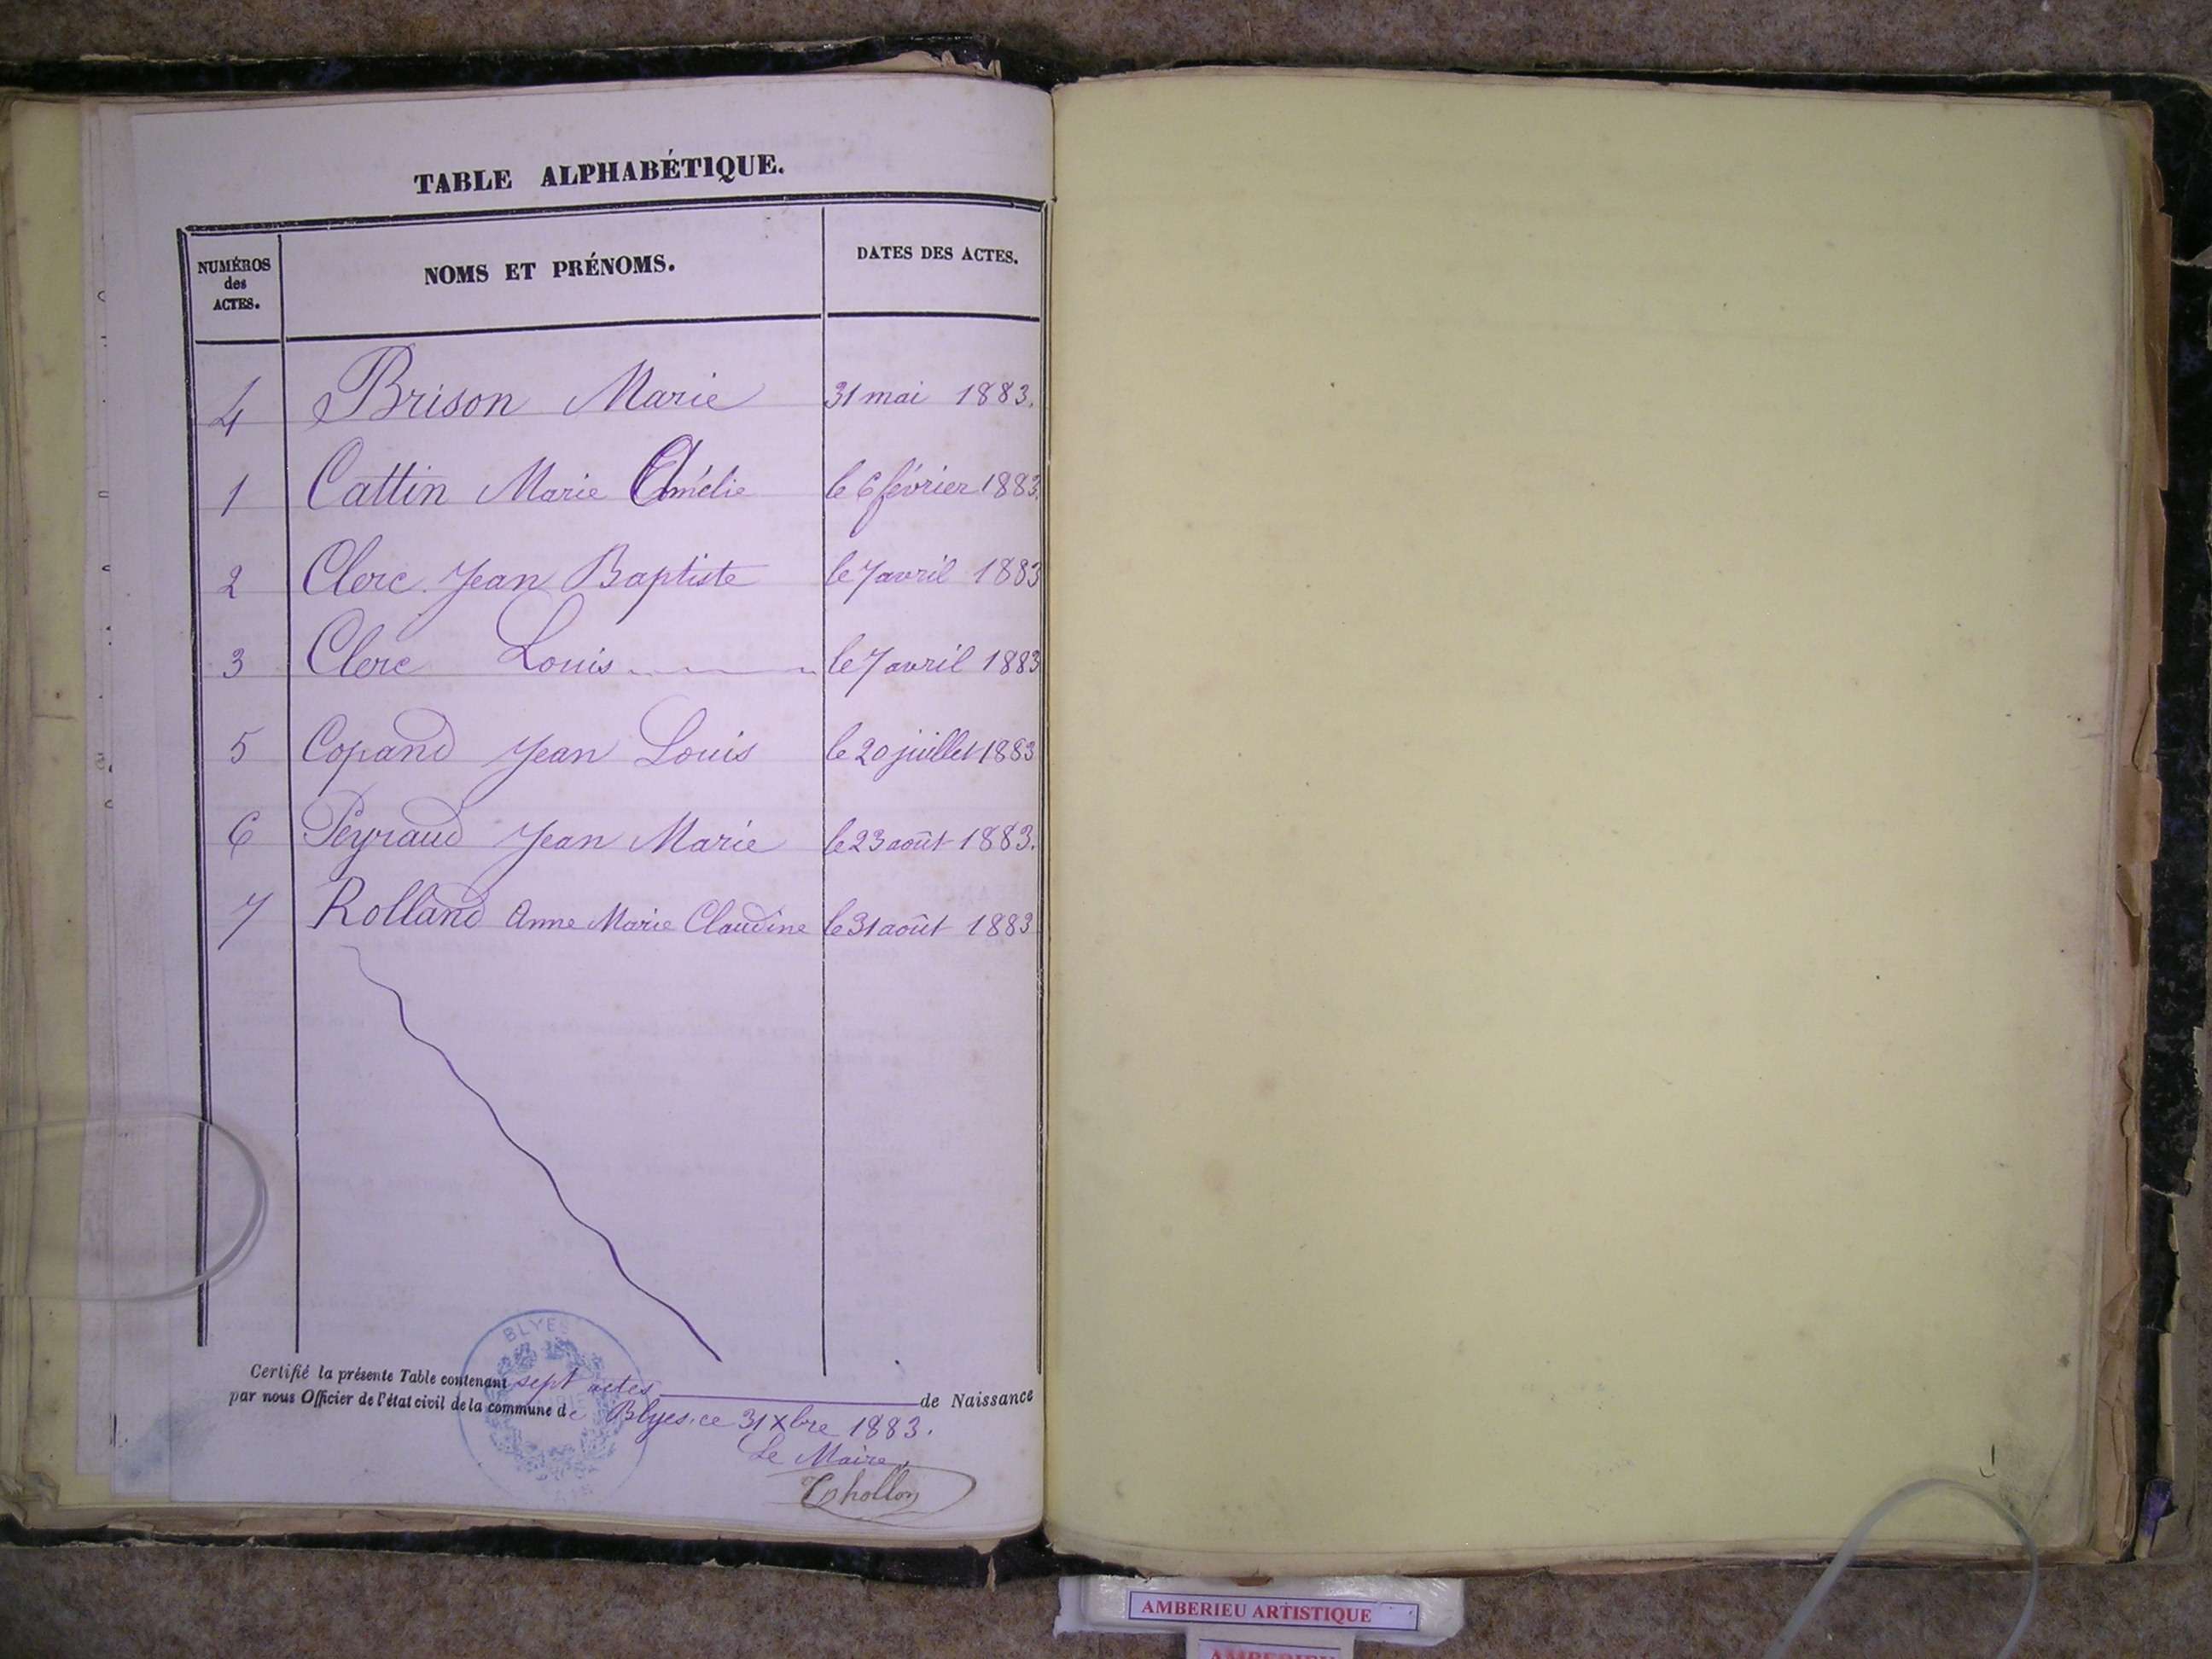 TABLE ALPHABÉTIQUE.
NUMÉROS
des
ACTES.
NOMS ET PRÉNOMS.
DATES DES ACTES.
4 Brison Marie 31 mai 1883.
1 Cattin Marie Amélie le 6 février 1883.
2 Clerc Jean Baptiste le 7 avril 1883
3 Clerc Louis le 7 avril 1883
5 Copand Jean Louis le 20 juillet 1883
6 Peyraud Jean Marie le 23 août 1883.
7 Rolland Anne Marie Claudine le 31 août 1883
BLYES
Certifié la présente Table contenant sept actes de Naissance
par nous Officier de l'état civil de la commune de Blyes, ce 31 Xbre 1883.
Le Maire,
AMBERIEU ARTISTIQUE
AMBERIEU